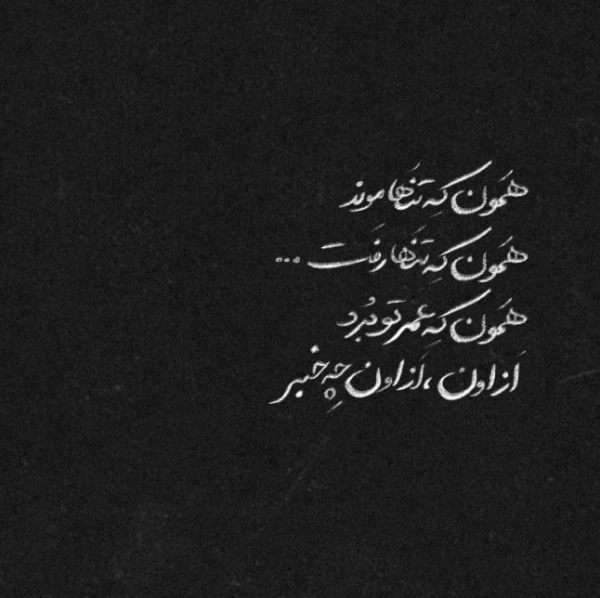 هَمون کِه تَنها موند
هَمون کِه تَنها رفَت ...
هَمون کِه عمر تو بُرد
اَز اون ، اَز اون چِه خبر